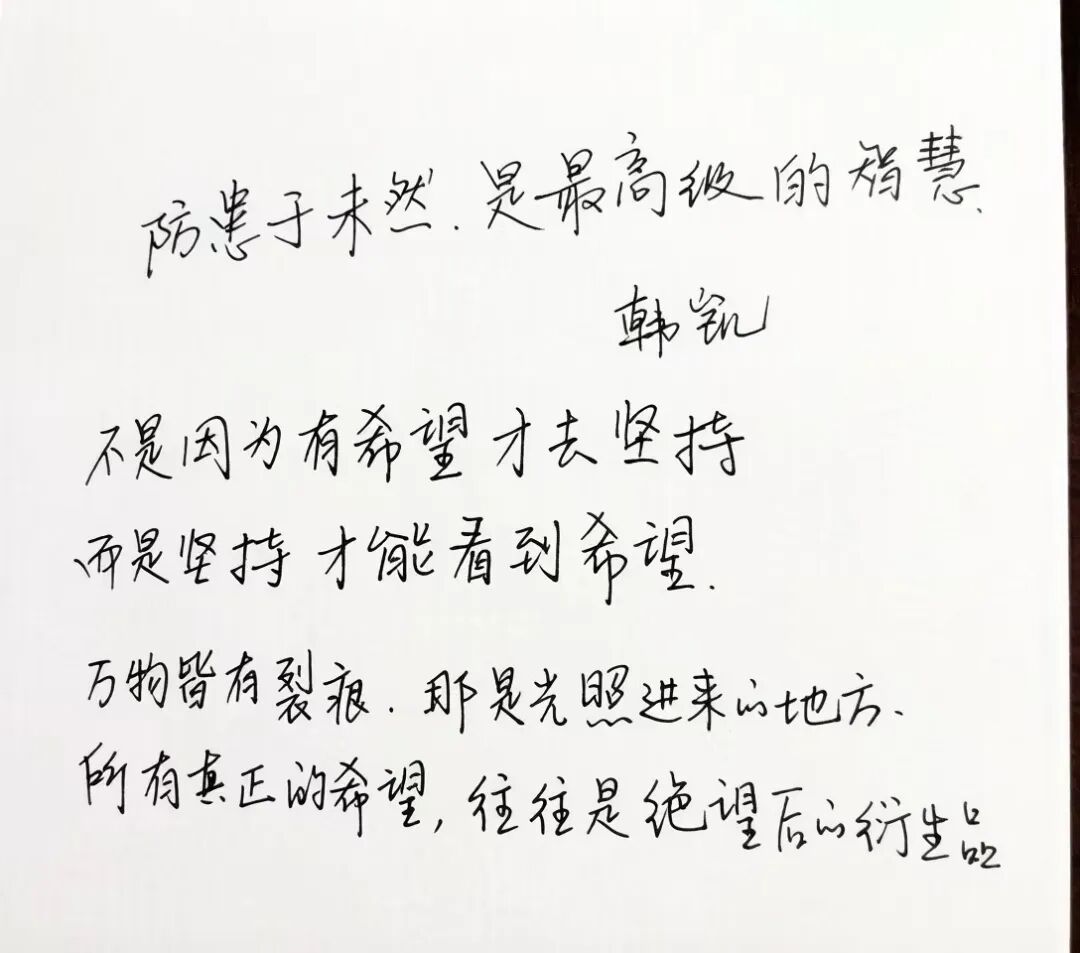 防患于未然.是最高级的智慧.
韩凯
不是因为有希望才去坚持
而是坚持才能看到希望.
万物皆有裂痕.那是光照进来的地方.
所有真正的希望,往往是绝望后的衍生品